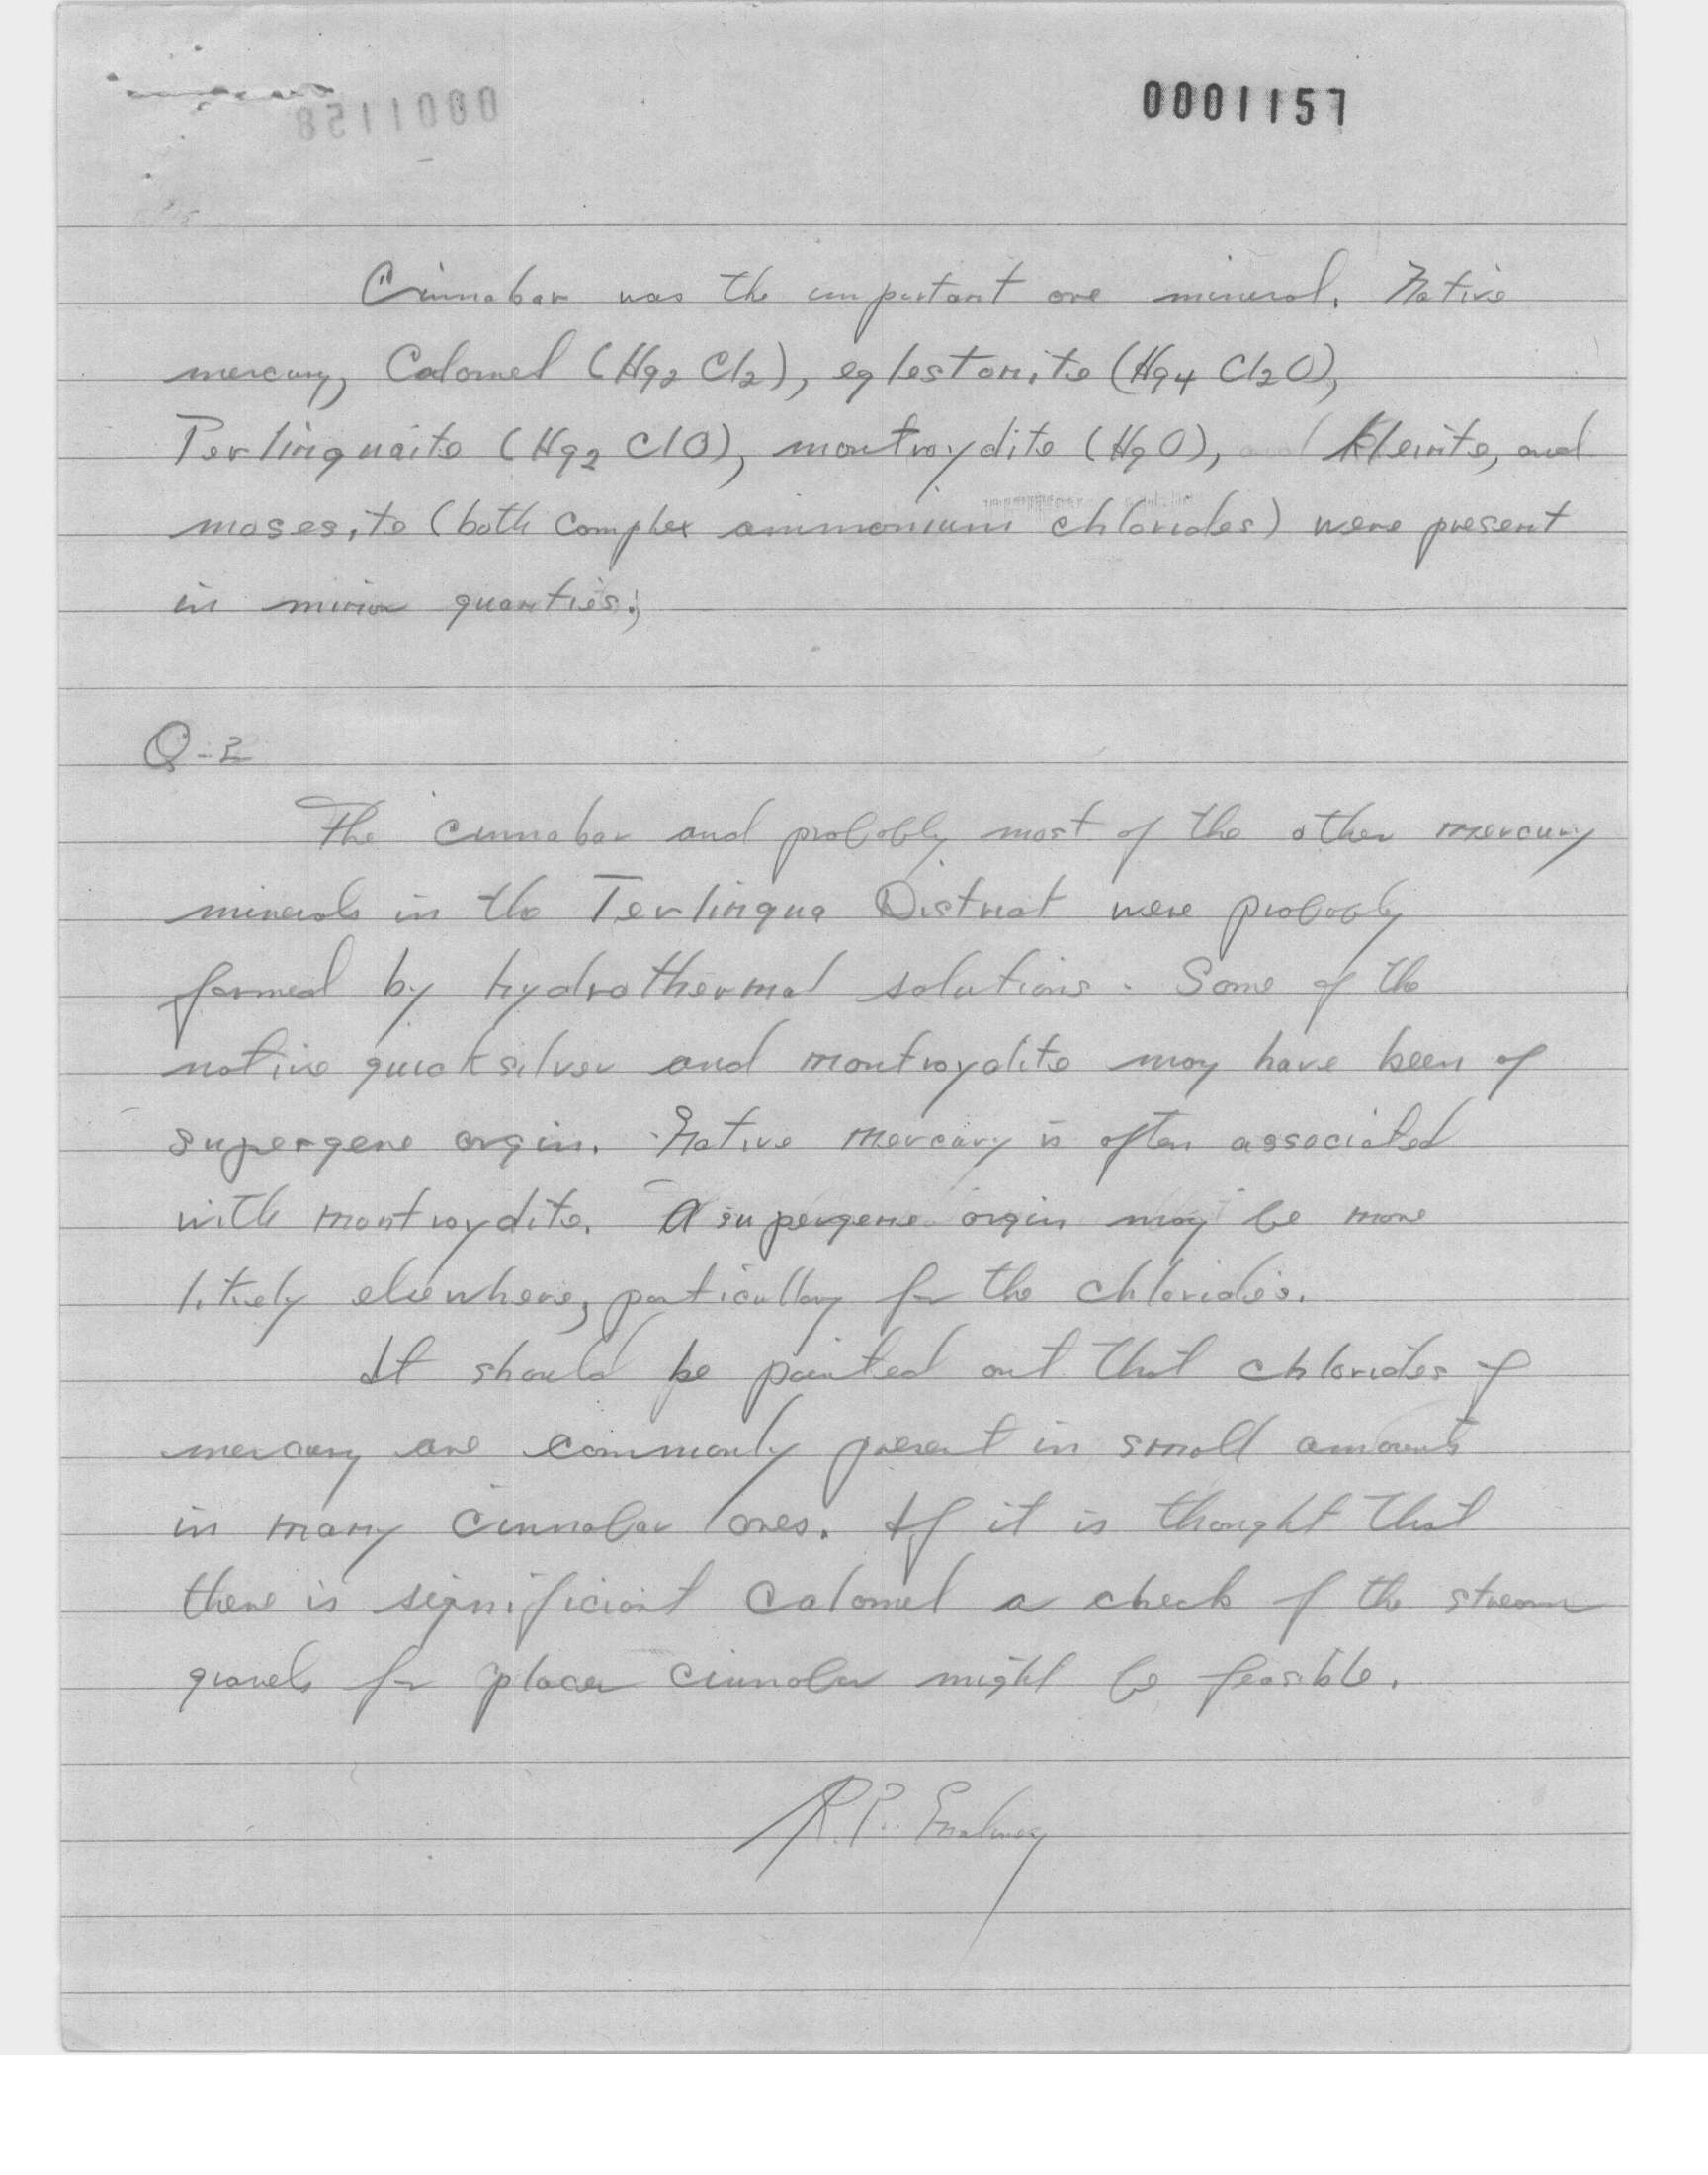 0001157
Cinnabar was the important ore mineral. Native
mercury, Calomel (Hg2 Cl2), eglestonite (Hg4 Cl2O),
Terlinguaite (Hg2 ClO), montroydite (HgO), kleinite, and
mosesite (both complex ammonium chlorides) were present
in minor quanties.
Q-2
The cinnabar and probably most of the other mercury
minerals in the Terlingua District were probably
formed by hydrothermal solutions. Some of the
native quicksilver and montroydite may have been of
supergene orgin. Native mercury is often associated
with montroydite. A supergene orgin may be more
likely elsewhere, particullary for the chlorides.
It should be pointed out that chlorides of
mercury are commonly present in small amounts
in many cinnabar ores. If it is thought that
there is significiant calomel a check of the stream
gravels for placer cinnabar might be feasible.
R.P.